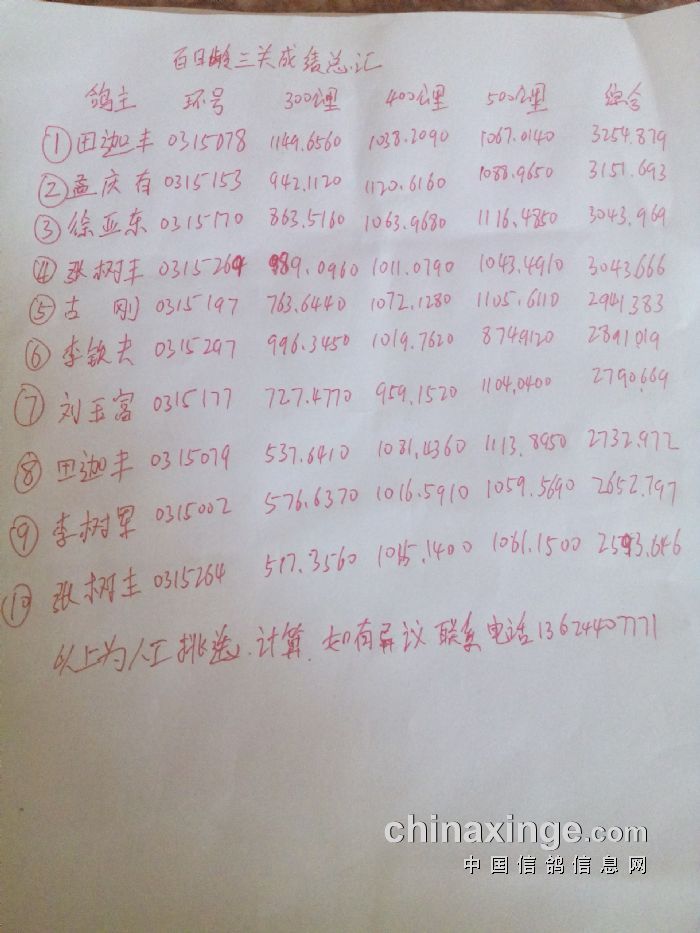 百日龄三关成绩总汇
鸽主 环号 300公里 400公里 500公里 综合
① 田迦丰 0315078 1149.6560 1038.2090 1067.0140 3254.879
② 孟庆有 0315153 942.1120 1120.6160 1088.9650 3151.693
③ 徐亚东 0315170 863.5160 1063.9680 1116.4850 3043.969
④ 张树丰 0315269 989.0960 1011.0790 1043.4910 3043.666
⑤ 古刚 0315197 763.6440 1072.1280 1105.6110 2941.383
⑥ 李钦夫 0315297 996.3450 1019.7620 8749120 2891.019
⑦ 刘玉富 0315177 727.4770 959.1520 1104.0400 2790.669
⑧ 田迦丰 0315079 537.6410 1081.4360 1113.8950 2732.972
⑨ 李树军 0315002 576.6370 1016.5910 1059.5690 2652.797
⑩ 张树丰 0315264 517.3560 1015.1400 1061.1500 2593.646
以上为人工挑选.计算.如有异议联系电话13624407771
chinaxinge.com
中国信鸽信息网